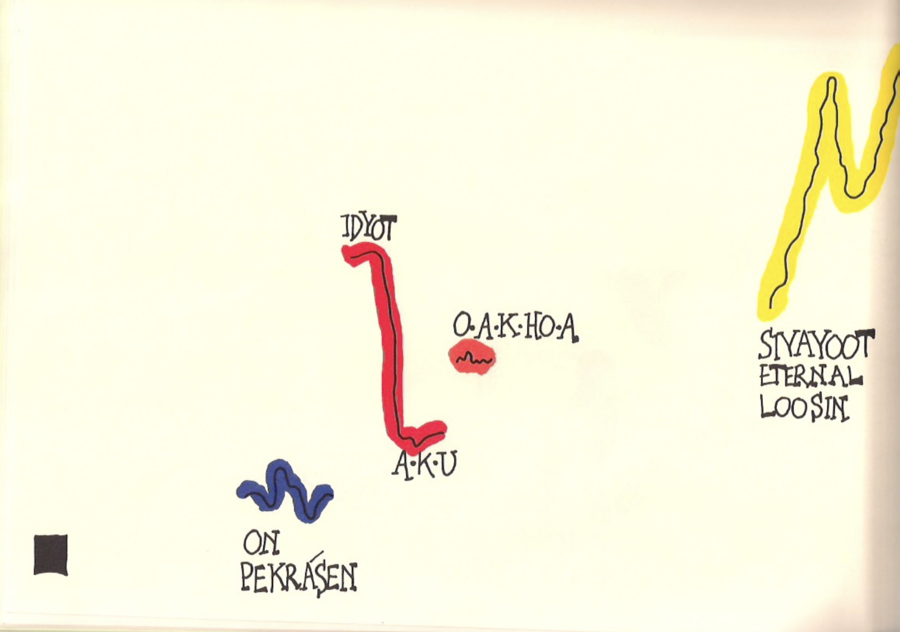 IDYOT
O·A·K·HO·A
SIYAYOOT
ETERNAL
LOOSIN
A·K·U
ON
PEKRÁSEN